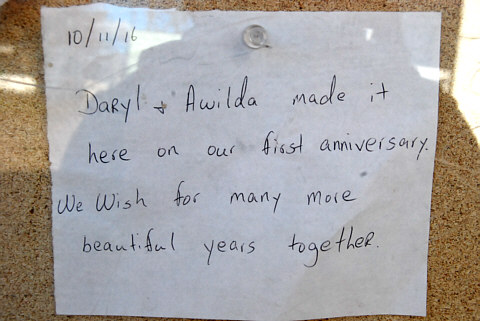 10/11/16
Daryl & Awilda made it
here on our first anniversary.
We Wish for many more
beautiful years together.